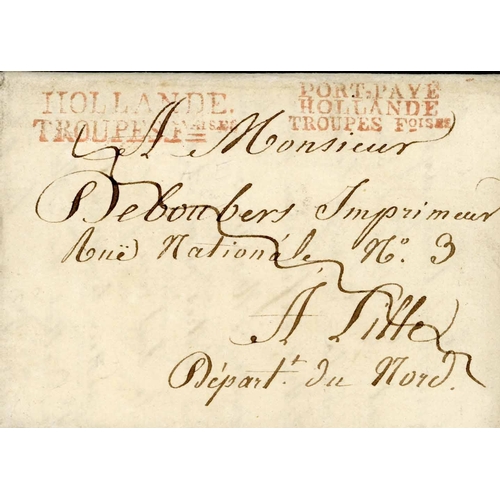 HOLLANDE.
TROUPES Fᴬᴵˢᴱˢ
PORT-PAYÉ
HOLLANDE
TROUPES Fᴼᴵˢᴱˢ
A Monsieur
Deboubers Imprimeur
Ruë Nationále, Nº. 3
A Lille
Départ.ᵗ du Nord.